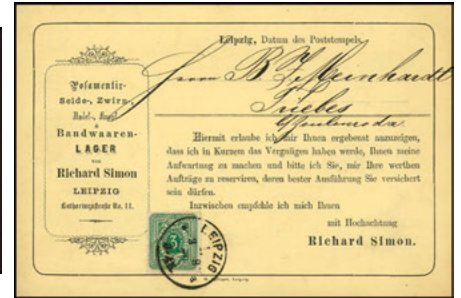 Leipzig, Datum des Poststempels.
Herrn B. F. Meinhardt
Triebes
Posamentir-
Seide-, Zwirn-,
&
Bandwaaren-
LAGER
von
Richard Simon
LEIPZIG
Katharinenstraße No. 11.
Hiermit erlaube ich mir Ihnen ergebenst anzuzeigen,
dass ich in Kurzem das Vergnügen haben werde, Ihnen meine
Aufwartung zu machen und bitte ich Sie, mir Ihre werthen
Aufträge zu reserviren, deren bester Ausführung Sie versichert
sein dürfen.
Inzwischen empfehle ich mich Ihnen
mit Hochachtung
Richard Simon.
LEIPZIG